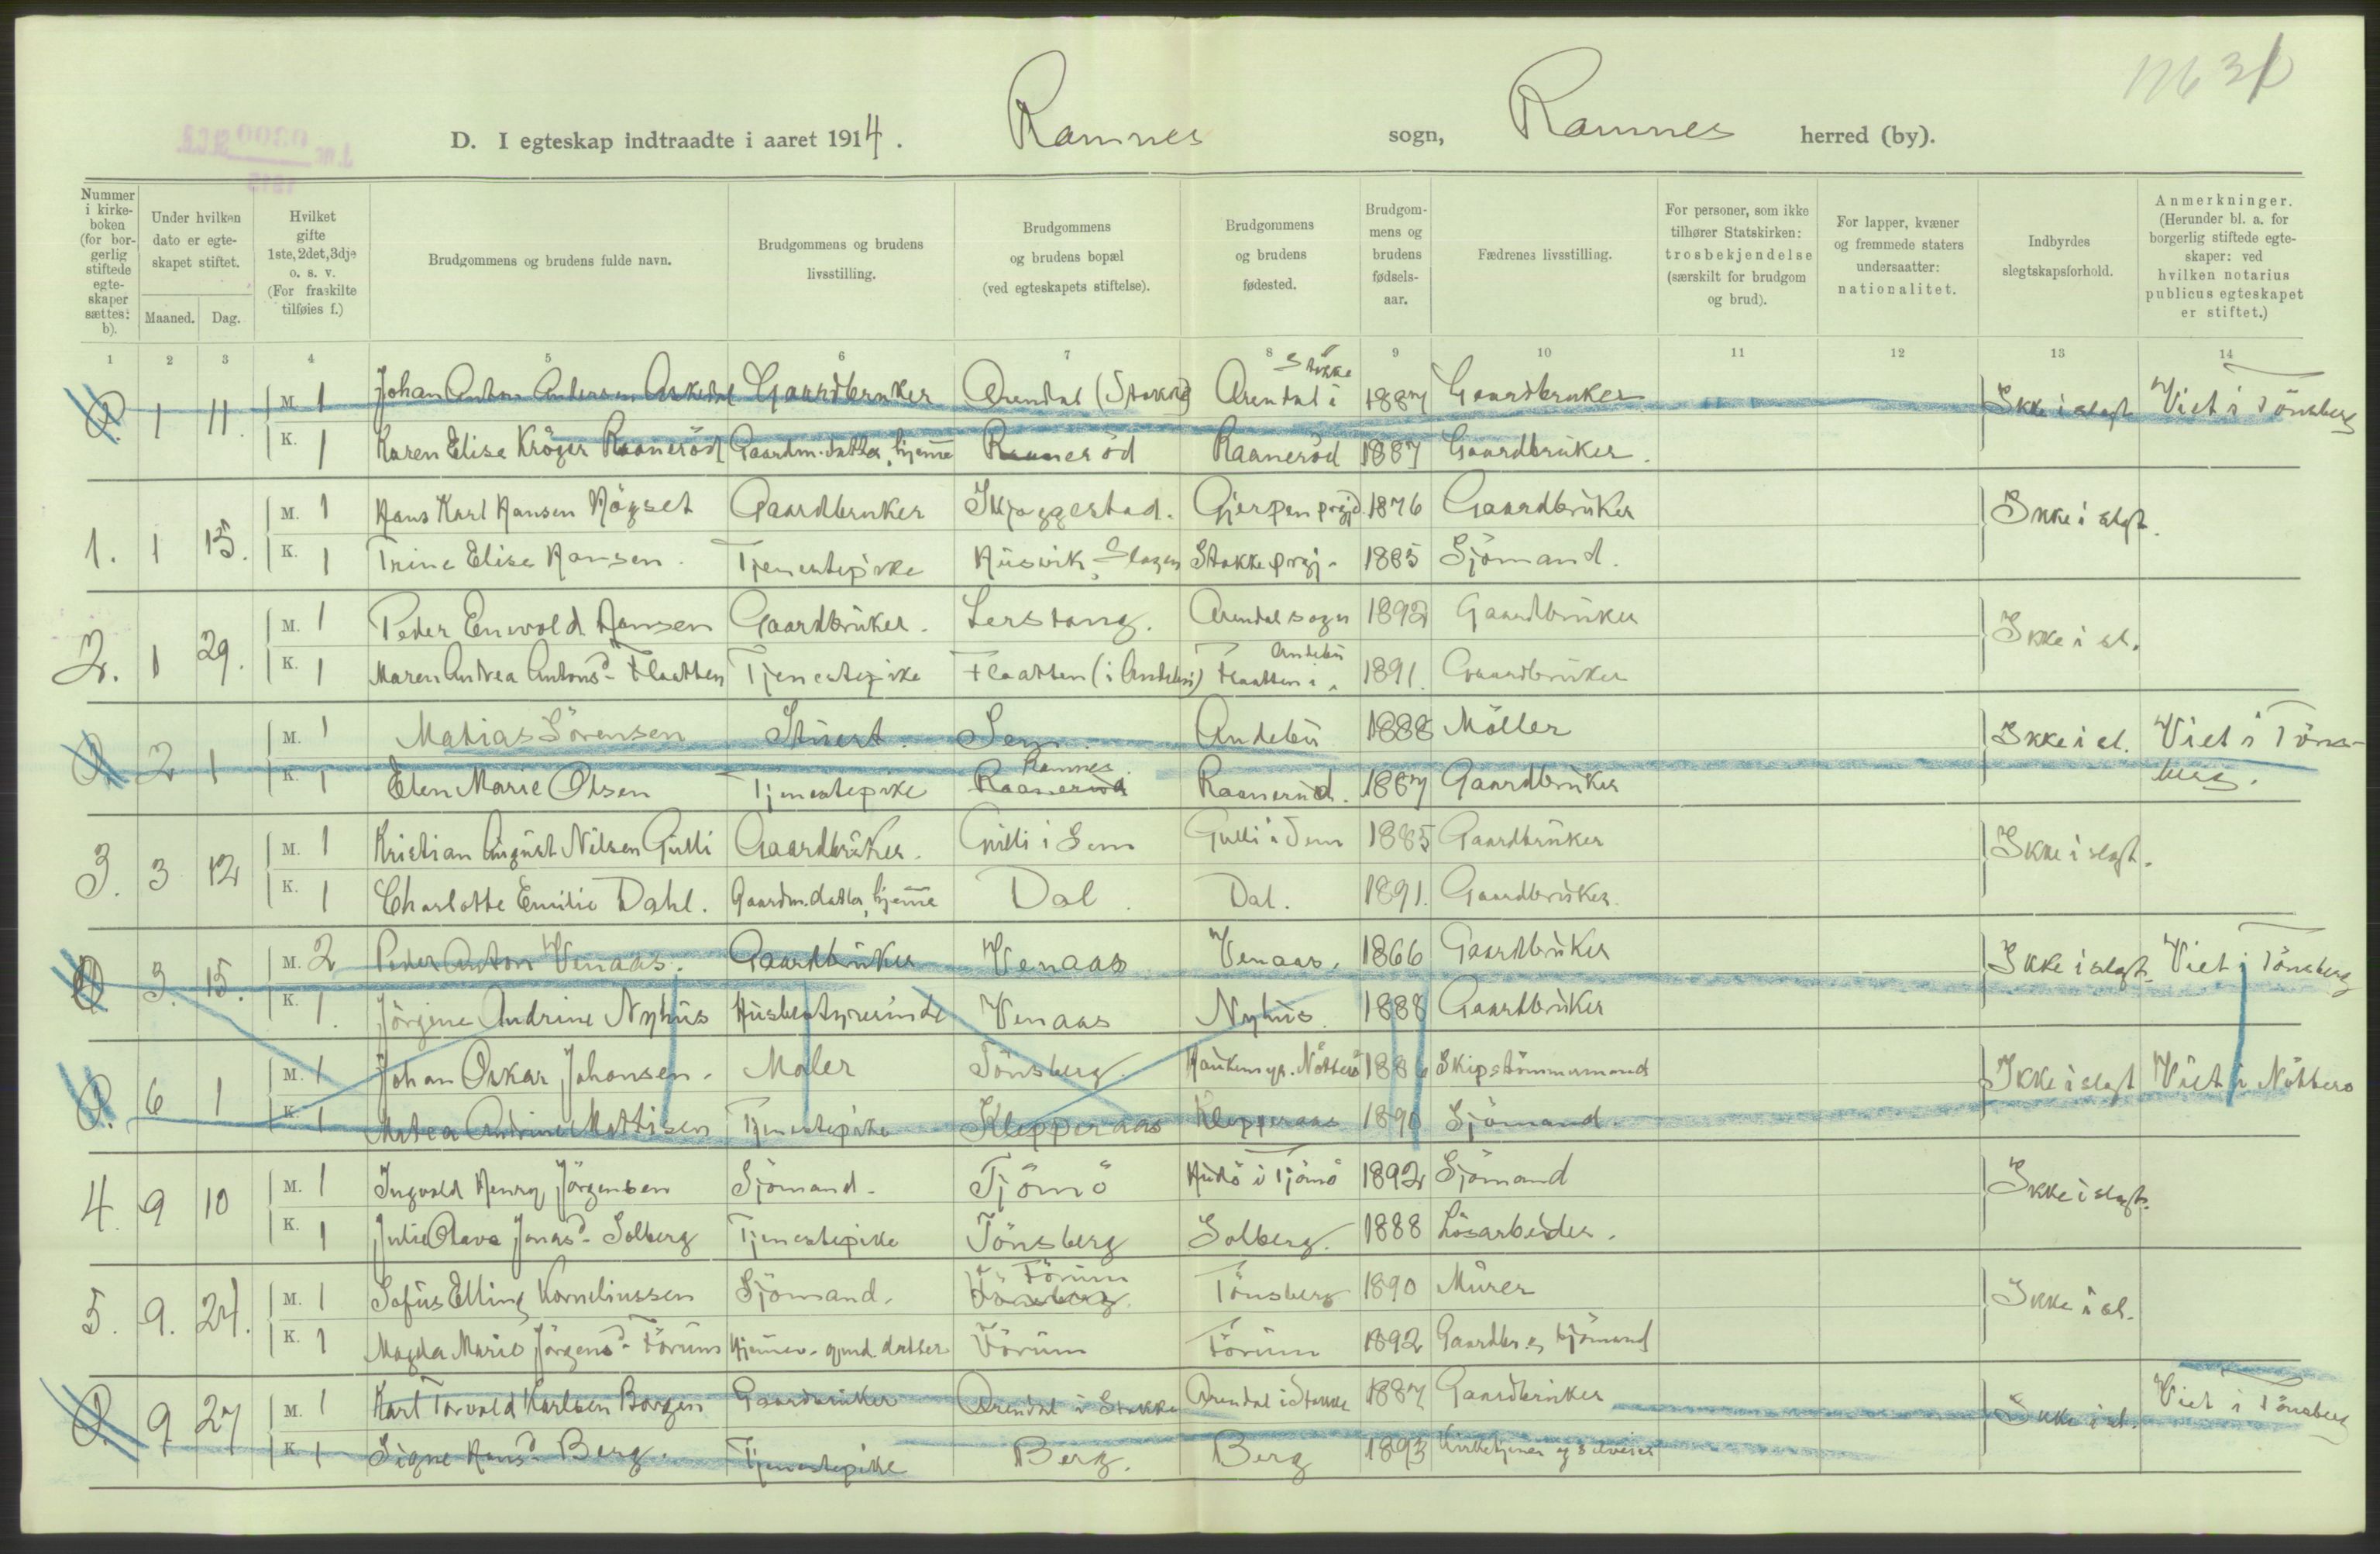 D. I egteskap indtraadte i aaret 1914. Ramnes sogn, Ramnes herred (by).
Nummer i kirkeboken (for borgerlig stiftede egteskaper sættes: b).
Under hvilken dato er egteskapet stiftet.
Maaned. Dag.
Hvilket gifte 1ste, 2det, 3dje o. s. v. (For fraskilte tilføies f.)
Brudgommens og brudens fulde navn.
Brudgommens og brudens livsstilling.
Brudgommens og brudens bopæl (ved egteskapets stiftelse).
Brudgommens og brudens fødested.
Brudgommens og brudens fødselsaar.
Fædrenes livsstilling.
For personer, som ikke tilhører Statskirken: trosbekjendelse (særskilt for brudgom og brud).
For lapper, kvæner og fremmede staters undersaatter: nationalitet.
Indbyrdes slegtskapsforhold.
Anmerkninger. (Herunder bl. a. for borgerlig stiftede egteskaper: ved hvilken notarius publicus egteskapet er stiftet.)
1 2 3 4 5 6 7 8 9 10 11 12 13 14
1 11. M. 1 Johan Anton Andersen Askedal Gaardbruker Arendal (Stokke) Arendal i Stokke 1887 Gaardbruker Ikke i slegt Viet i Tönsberg
K. 1 Karen Elise Kröger Raaneröd Gaardm. datter, hjemme Raaneröd Raaneröd 1887 Gaardbruker.
1. 1 15. M. 1 Hans Karl Hansen Högset Gaardbruker Skjaggestad. Gjerpen prgjd. 1876 Gaardbruker Ikke i slegt.
K. 1 Trine Elise Hansen. Tjenestepike Husvik, Slagen Stokke prgj. 1885 Sjömand.
2. 1 29. M. 1 Peder Enevold Hansen Gaardbruker. Lerstang. Arendal sogn 1892 Gaardbruker Ikke i sl.
K. 1 Maren Andrea Antonsd. Flaatten Tjenestepike Flaatten (i Andebu) Flaatten i Andebu 1891. Gaardbruker
2 1 M. 1 Matias Sörensen Stuert. Sem. Andebu 1888 Möller Ikke i sl. Viet i Töns-
berg.
K. 1 Elen Marie Olsen Tjenestepike Ramnes. Raaneröd Raaneröd. 1887 Gaardbruker
3. 3 12 M. 1 Kristian August Nilsen Gulli Gaardbruker. Gulli i Sem Gulli i Sem 1885 Gaardbruker Ikke i slegt.
K. 1 Charlotte Emilie Dahl. Gaardm. datter, hjemme Dal. Dal. 1891. Gaardbruker.
3. 15. M. 2 Peder Anton Venaas. Gaardbruker Venaas Venaas. 1866 Gaardbruker Ikke i slegt. Viet i Tönsberg
K. 1. Jörgine Andrine Nyhus Husbestyrerinde Venaas Nyhus. 1888 Gaardbruker
6 1 M. 1 Johan Oskar Johansen. Maler Tönsberg. Nötterö 1886 Skipstömmermand Ikke i slegt Viet i Nötterö
K. 1 Matea Andrine Mattisen Tjenestepike Klepperaas Klepperaas 1890 Sjömand.
4. 9 10 M. 1 Ingvald Henry Jörgensen Sjömand. Tjömö Hudö i Tjömö 1892 Sjömand Ikke i slegt.
K. 1 Julie Olava Jonasd. Solberg Tjenestepike Tönsberg Solberg. 1888 Lösarbeider.
5. 9. 24. M. 1 Sofus Elling Korneliussen Sjömand. Förum Tönsberg. Tönsberg 1890 Murer Ikke i sl.
K. 1 Magda Marie Jörgensd. Förum Hjemmev. gmd. datter Förum Förum 1892 Gaardbr. og Sjömand
9 27 M. 1 Karl Torvald Karlsen Borgen Gaardbruker Arendal i Stokke Arendal i Stokke 1887 Gaardbruker Ikke i sl. Viet i Tönsberg
K. 1 Signe Hansd. Berg. Tjenestepike Berg. Berg 1893 Kirketjener og Selveier